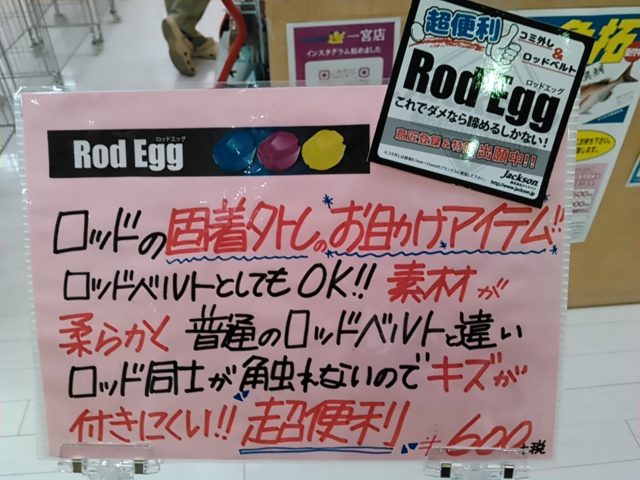 一宮店
インスタグラム始めました
超便利
コミ外し
&
ロッドベルト
ロッドエッグ
Rod Egg
これでダメなら諦めるしかない!
意匠登録&特許出願中!!
Jackson
http://www.jackson.jp
魚拓
ロッドエッグ
Rod Egg
ロッドの固着外しのお助けアイテム!!
ロッドベルトとしてもOK!! 素材が
柔らかく 普通のロッドベルトと違い
ロッド同士が触れないのでキズが
付きにくい!! 超便利 ¥600+税